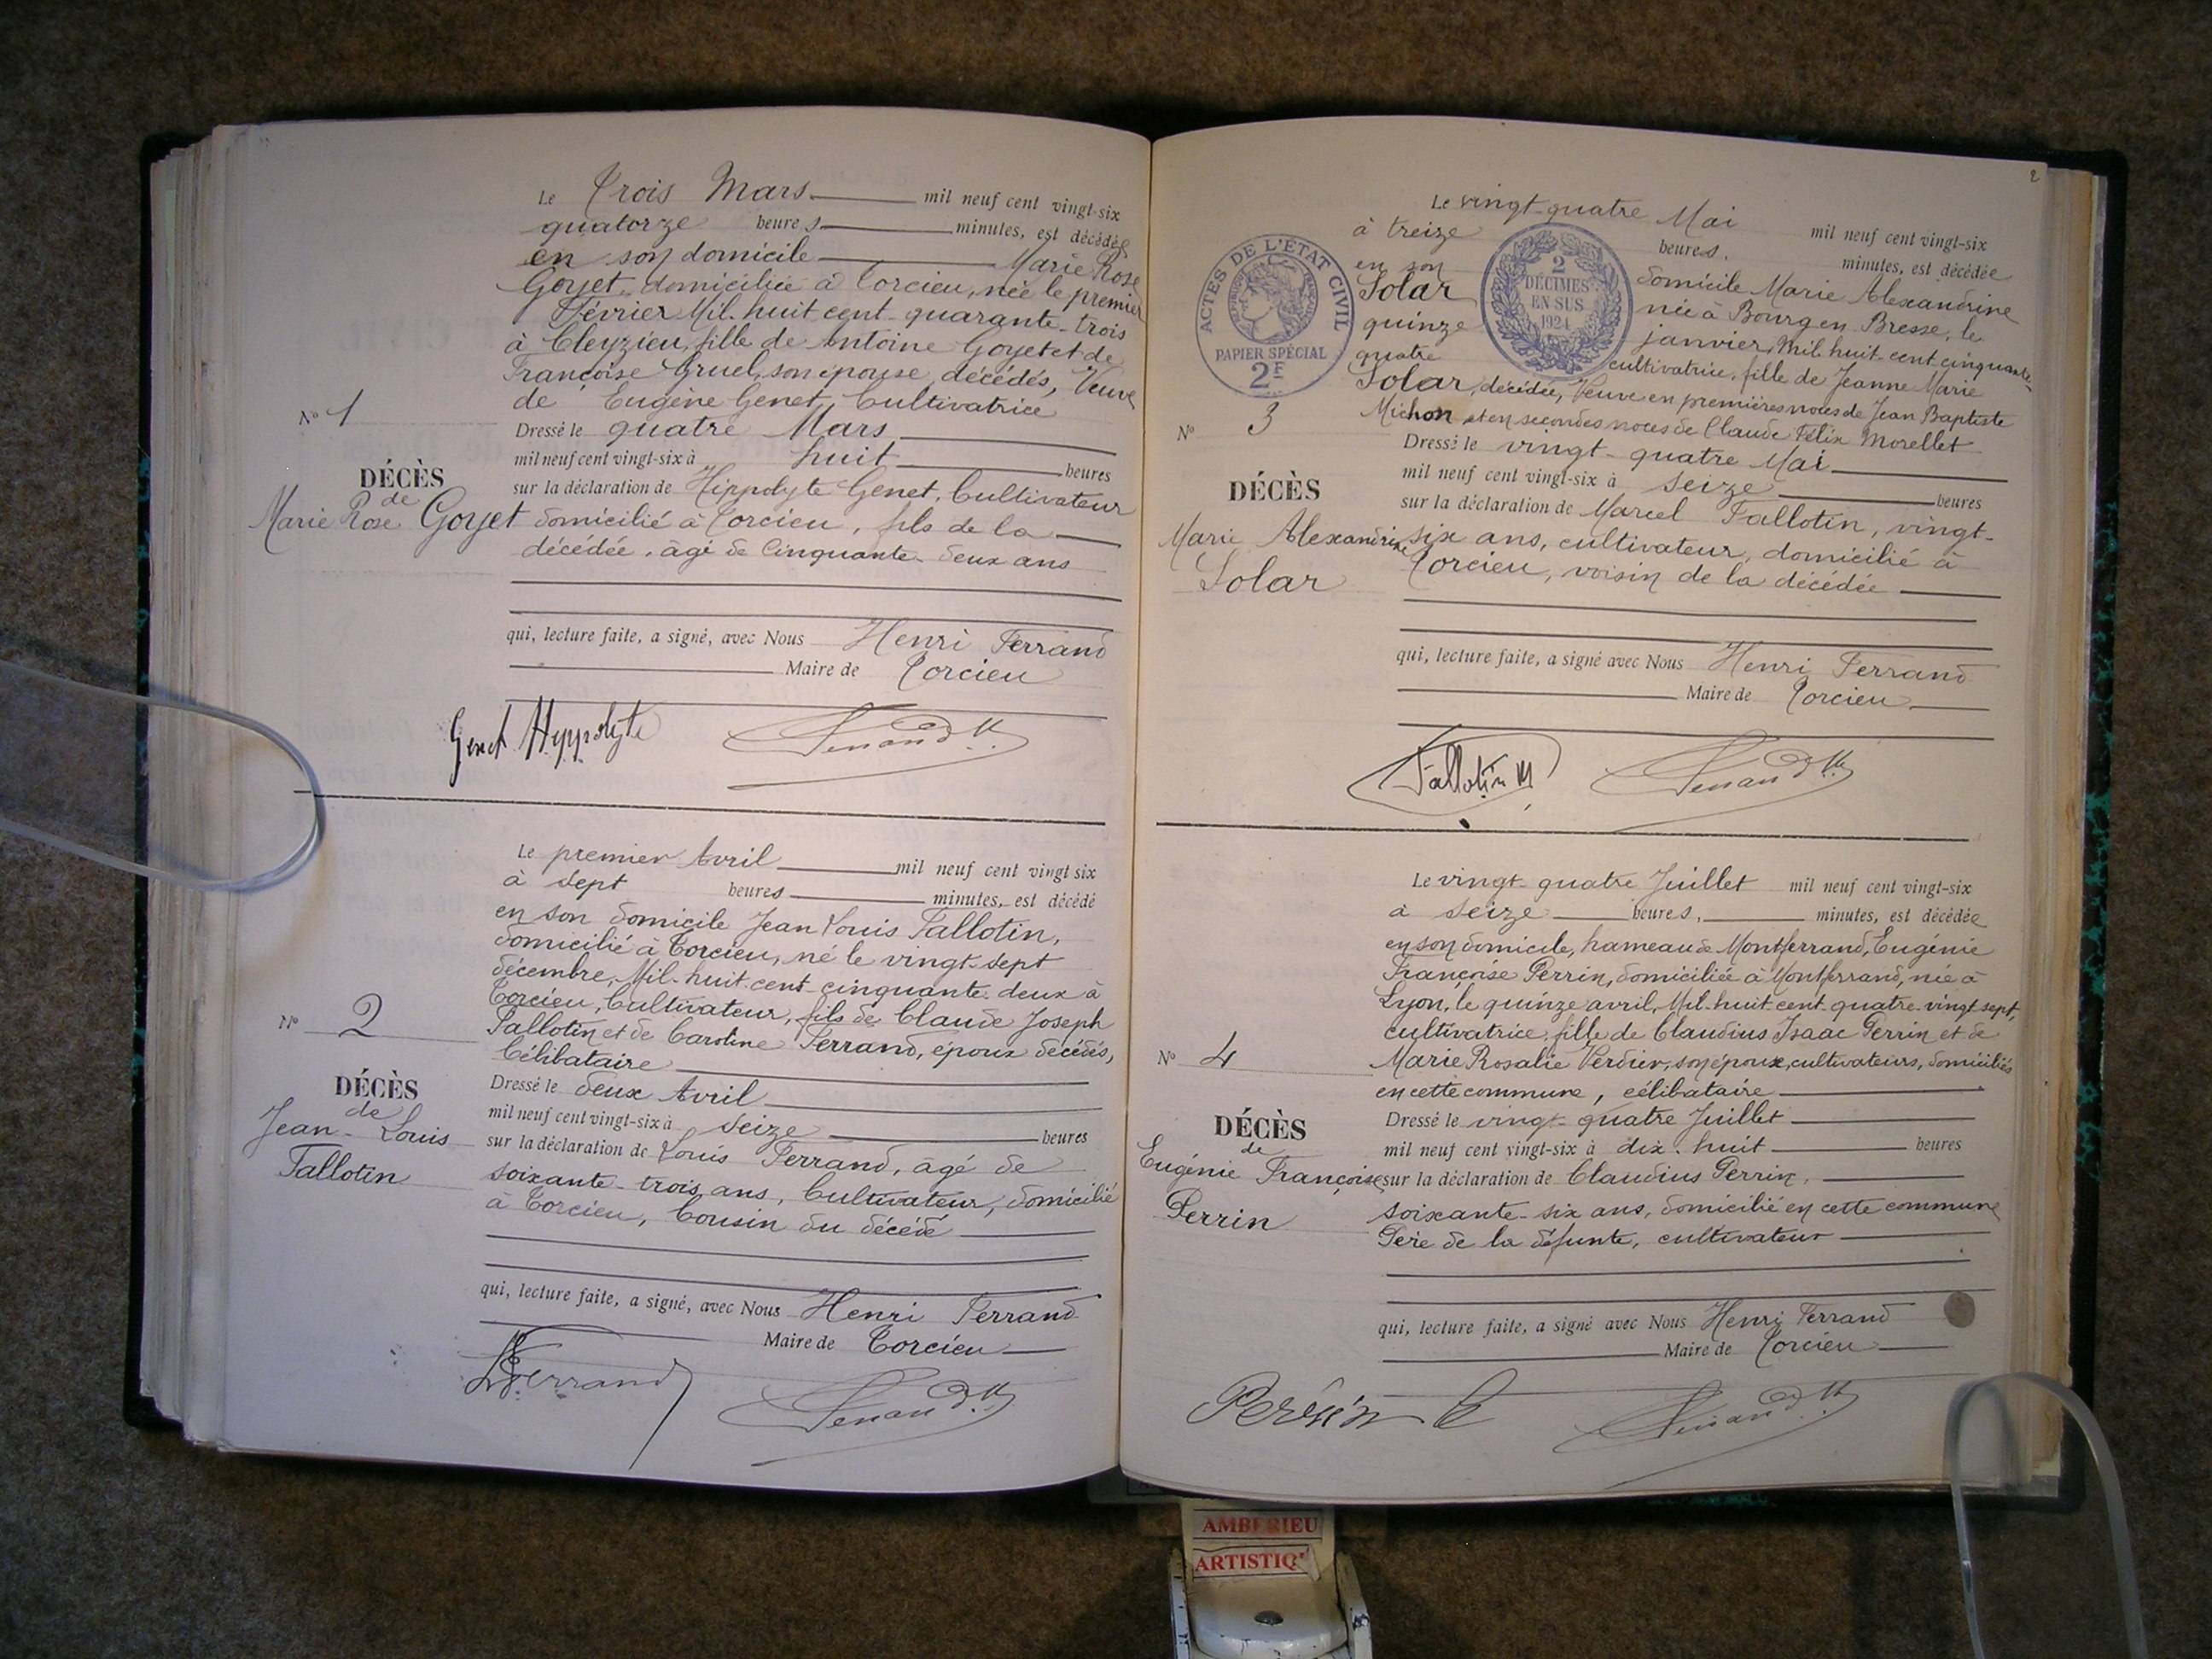 Le Trois Mars mil neuf cent vingt-six
quatorze heures minutes, est décédée
en son domicile Marie Rose
Goyet domiciliée à Torcieu, née le premier
Février Mil. huit cent quarante-trois
à Cleyzieu, fille de Antoine Goyet et de
Françoise Gruel, son épouse, décédés, Veuve
de Eugène Genet, Cultivatrice
Nº 1
Dressé le quatre Mars
mil neuf cent vingt-six à huit heures
DÉCÈS
de
Marie Rose Goyet
sur la déclaration de Hippolyte Genet, Cultivateur
domicilié à Torcieu, fils de la
décédée, âgé de Cinquante-deux ans
qui, lecture faite, a signé, avec Nous Henri Ferrand
Maire de Torcieu
Genet Hyppolyte Ferrand H.
Le premier Avril mil neuf cent vingt six
à sept heures minutes, est décédé
en son domicile Jean Louis Tallotin,
domicilié à Torcieu, né le vingt-sept
décembre, Mil. huit-cent-cinquante-deux à
Torcieu, Cultivateur, fils de Claude Joseph
Tallotin et de Caroline Ferrand, époux décédés,
Célibataire
Nº 2
Dressé le deux Avril
mil neuf cent vingt-six à seize heures
DÉCÈS
de
Jean-Louis
Tallotin
sur la déclaration de Louis Ferrand, âgé de
soixante-trois ans, Cultivateur, domicilié
à Torcieu, Cousin du décédé
qui, lecture faite, a signé, avec Nous Henri Ferrand
Maire de Torcieu
L Ferrand Ferrand H.
2
Le vingt-quatre Mai mil neuf cent vingt-six
à treize heures, minutes, est décédée
en son domicile Marie Alexandrine
Solar née à Bourg en Bresse, le
quinze janvier, Mil. huit-cent cinquante-
quatre cultivatrice, fille de Jeanne Marie
Solar, décédée, Veuve en premières noces de Jean Baptiste
Michon et en secondes noces de Claude Félix Morellet
ACTES DE L'ÉTAT CIVIL
PAPIER SPÉCIAL
2F
2
DÉCIMES
EN SUS
1924
Nº 3
Dressé le vingt-quatre Mai
mil neuf cent vingt-six à seize heures
DÉCÈS
Marie Alexandrine
Solar
sur la déclaration de Marcel Tallotin, vingt-
six ans, cultivateur, domicilié à
Torcieu, voisin de la décédée
qui, lecture faite, a signé avec Nous Henri Ferrand
Maire de Torcieu
Tallotin M Ferrand H.
Le vingt-quatre Juillet mil neuf cent vingt-six
à seize heures, minutes, est décédée
en son domicile, hameau de Montferrand, Eugénie
Françoise Perrin, domiciliée à Montferrand, née à
Lyon, le quinze avril, Mil. huit-cent quatre-vingt sept,
cultivatrice, fille de Claudius Isaac Perrin et de
Marie Rosalie Verdier, son époux, cultivateurs, domiciliés
en cette commune, célibataire
Nº 4
Dressé le vingt-quatre Juillet
mil neuf cent vingt-six à dix-huit heures
DÉCÈS
de
Eugénie Françoise
Perrin
sur la déclaration de Claudius Perrin,
soixante-six ans, domicilié en cette commune
Père de la défunte, cultivateur
qui, lecture faite, a signé avec Nous Henri Ferrand
Maire de Torcieu
Perrin C Ferrand H.
AMBERIEU
ARTISTIQ'